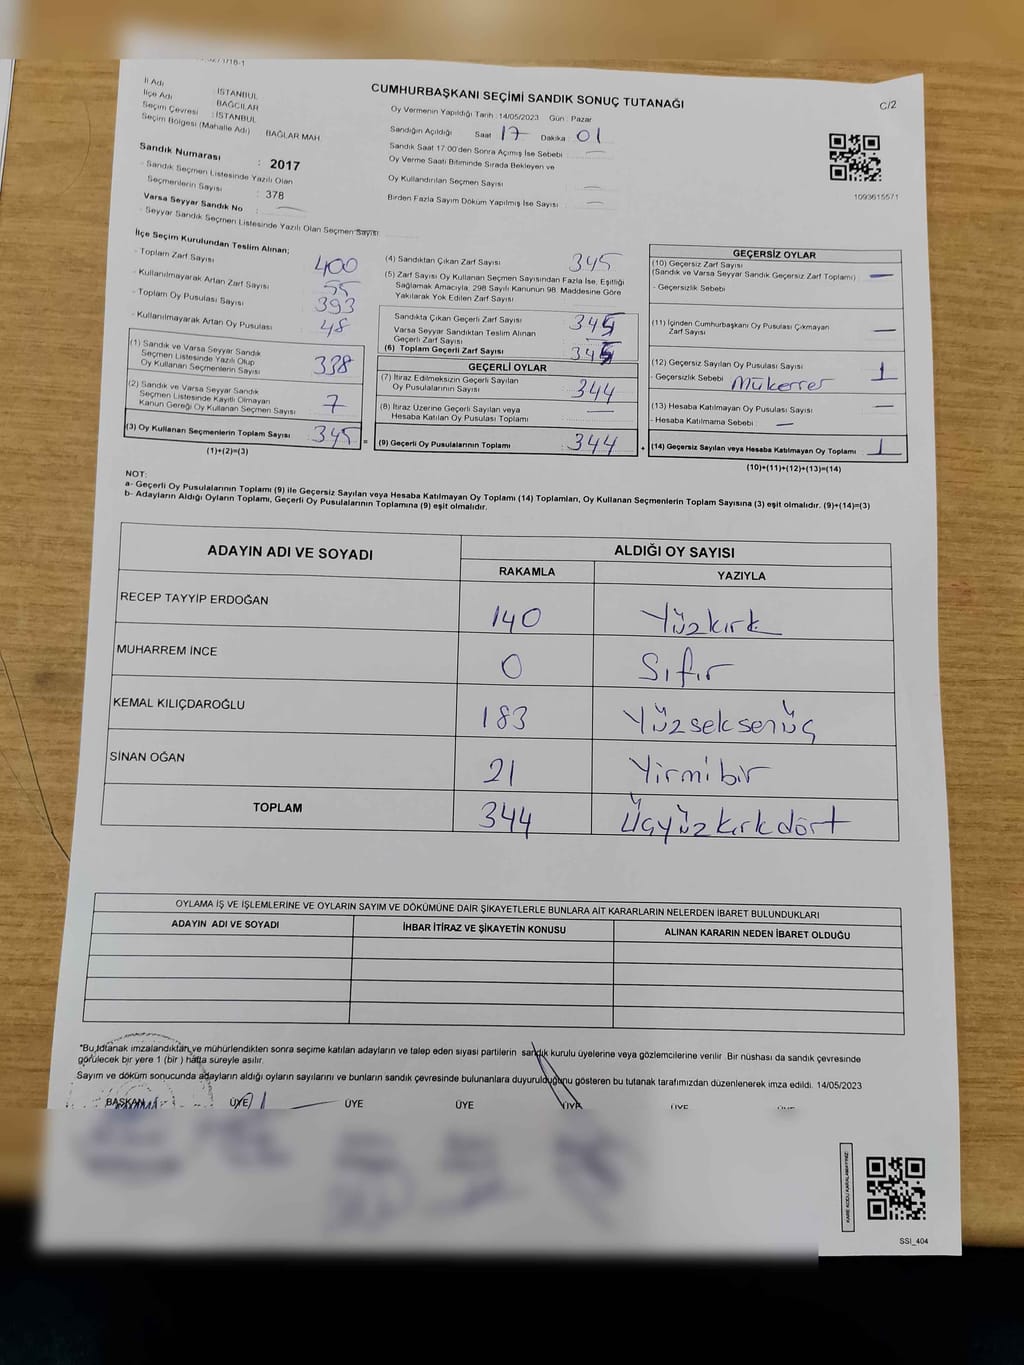 CUMHURBAŞKANI SEÇİMİ SANDIK SONUÇ TUTANAĞI
C/2
İl Adı : İSTANBUL
İlçe Adı : BAĞCILAR
Seçim Çevresi : İSTANBUL
Seçim Bölgesi (Mahalle Adı) BAĞLAR MAH
Sandık Numarası : 2017
- Sandık Seçmen Listesinde Yazılı Olan
Seçmenlerin Sayısı : 378
Varsa Seyyar Sandık No : —
- Seyyar Sandık Seçmen Listesinde Yazılı Olan Seçmen Sayısı
Oy Vermenin Yapıldığı Tarih : 14/05/2023 Gün : Pazar
Sandığın Açıldığı Saat 17 Dakika 01
Sandık Saat 17:00'den Sonra Açımış İse Sebebi : —
Oy Verme Saati Bitiminde Sırada Bekleyen ve
Oy Kullandırılan Seçmen Sayısı : —
Birden Fazla Sayım Döküm Yapılmış İse Sayısı : —
1093615571
İlçe Seçim Kurulundan Teslim Alınan;
- Toplam Zarf Sayısı 400
- Kullanılmayarak Artan Zarf Sayısı 55
- Toplam Oy Pusulası Sayısı 393
- Kullanılmayarak Artan Oy Pusulası 48
(1) Sandık ve Varsa Seyyar Sandık
Seçmen Listesinde Yazılı Olup
Oy Kullanan Seçmenlerin Sayısı 338
(2) Sandık ve Varsa Seyyar Sandık
Seçmen Listesinde Kayıtlı Olmayan
Kanun Gereği Oy Kullanan Seçmen Sayısı 7
(3) Oy Kullanan Seçmenlerin Toplam Sayısı 345 =
(1)+(2)=(3)
(4) Sandıktan Çıkan Zarf Sayısı 345
(5) Zarf Sayısı Oy Kullanan Seçmen Sayısından Fazla İse, Eşitliği
Sağlamak Amacıyla, 298 Sayılı Kanunun 98. Maddesine Göre
Yakılarak Yok Edilen Zarf Sayısı
Sandıkta Çıkan Geçerli Zarf Sayısı 345
Varsa Seyyar Sandıktan Teslim Alınan
Geçerli Zarf Sayısı —
(6) Toplam Geçerli Zarf Sayısı 345
GEÇERLİ OYLAR
(7) İtiraz Edilmeksizin Geçerli Sayılan
Oy Pusulalarının Sayısı 344
(8) İtiraz Üzerine Geçerli Sayılan veya
Hesaba Katılan Oy Pusulası Toplamı —
(9) Geçerli Oy Pusulalarının Toplamı 344 +
GEÇERSİZ OYLAR
(10) Geçersiz Zarf Sayısı
(Sandık ve Varsa Seyyar Sandık Geçersiz Zarf Toplamı) —
- Geçersizlik Sebebi
(11) İçinden Cumhurbaşkanı Oy Pusulası Çıkmayan
Zarf Sayısı —
(12) Geçersiz Sayılan Oy Pusulası Sayısı 1
- Geçersizlik Sebebi Mükerrer
(13) Hesaba Katılmayan Oy Pusulası Sayısı —
- Hesaba Katılmama Sebebi —
(14) Geçersiz Sayılan veya Hesaba Katılmayan Oy Toplamı 1
(10)+(11)+(12)+(13)=(14)
NOT:
a- Geçerli Oy Pusulalarının Toplamı (9) ile Geçersiz Sayılan veya Hesaba Katılmayan Oy Toplamı (14) Toplamları, Oy Kullanan Seçmenlerin Toplam Sayısına (3) eşit olmalıdır. (9)+(14)=(3)
b- Adayların Aldığı Oyların Toplamı, Geçerli Oy Pusulalarının Toplamına (9) eşit olmalıdır.
ADAYIN ADI VE SOYADI ALDIĞI OY SAYISI
RAKAMLA YAZIYLA
RECEP TAYYİP ERDOĞAN 140 Yüzkırk
MUHARREM İNCE 0 Sıfır
KEMAL KILIÇDAROĞLU 183 Yüzseksenüç
SİNAN OĞAN 21 Yirmibir
TOPLAM 344 Üçyüzkırkdört
OYLAMA İŞ VE İŞLEMLERİNE VE OYLARIN SAYIM VE DÖKÜMÜNE DAİR ŞİKAYETLERLE BUNLARA AİT KARARLARIN NELERDEN İBARET BULUNDUKLARI
ADAYIN ADI VE SOYADI İHBAR İTİRAZ VE ŞİKAYETİN KONUSU ALINAN KARARIN NEDEN İBARET OLDUĞU
*Bu tutanak imzalandıktan ve mühürlendikten sonra seçime katılan adayların ve talep eden siyasi partilerin sandık kurulu üyelerine veya gözlemcilerine verilir. Bir nüshası da sandık çevresinde
görülecek bir yere 1 (bir) hafta süreyle asılır.
Sayım ve döküm sonucunda adayların aldığı oyların sayılarını ve bunların sandık çevresinde bulunanlara duyurulduğunu gösteren bu tutanak tarafımızdan düzenlenerek imza edildi. 14/05/2023
BAŞKAN ÜYE ÜYE ÜYE ÜYE ÜYE
KARE KODU KARALAMAYINIZ
SSI_404